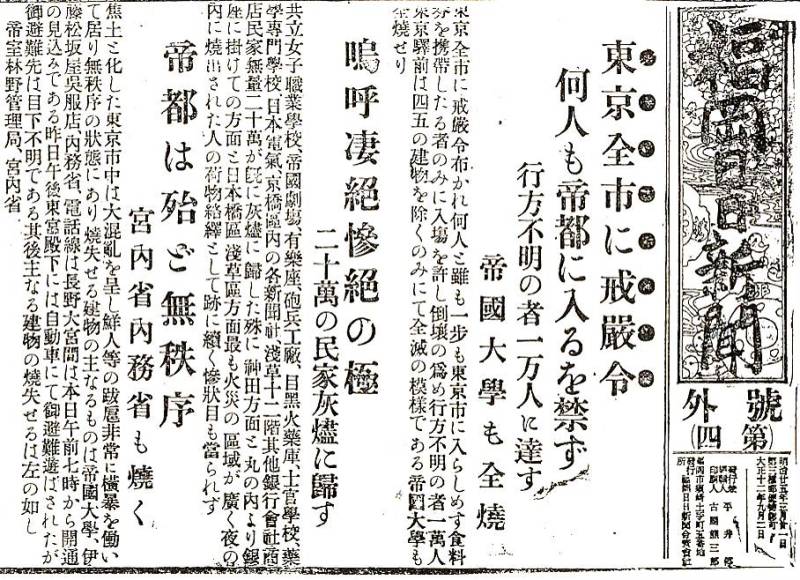 福岡日日新聞
號外
(第四)
明治廿五年三月廿一日
第三種郵便物認可
大正十二年九月二日
東京全市に戒嚴令
何人も帝都に入るを禁ず
行方不明の者一万人に達す
帝國大學も全燒
東京全市に戒嚴令布かれ何人と雖も一步も東京市に入らしめず食料
を携帶したる者のみに入場を許し倒壞の爲め行方不明の者一萬人
東京驛前は四五の建物を除くのみにて全滅の模樣である帝國大學も
全燒せり
嗚呼凄絕慘絕の極
二十萬の民家灰燼に歸す
共立女子職業學校、帝國劇場、有樂座、砲兵工廠、目黑火藥庫、士官學校、藥
學專門學校、日本電氣、京橋區內の各新聞社、淺草十二階其他銀行會社商
店民家無量二十萬が旣に灰燼に歸した殊に神田方面と丸の內より銀
座に掛けての方面と日本橋區淺草區方面最も火災の區域が廣く夜の
內に燒出された人の荷物絡繹として跡に續く慘狀目も當られず
帝都は殆ど無秩序
宮內省內務省も燒く
焦土と化した東京市中は大混亂を呈し鮮人等の跋扈非常に橫暴を働い
て居り無秩序の狀態にあり燒失せる建物の主なるものは帝國大學、伊
藤松坂屋吳服店、內務省、電話線は長野大宮間は本日午前七時から開通
の見込みである昨日午後東宮殿下には自動車にて御避難遊ばされたが
御避難先は目下不明である其後主なる建物の燒失せるは左の如し
帝室林野管理局、宮內省